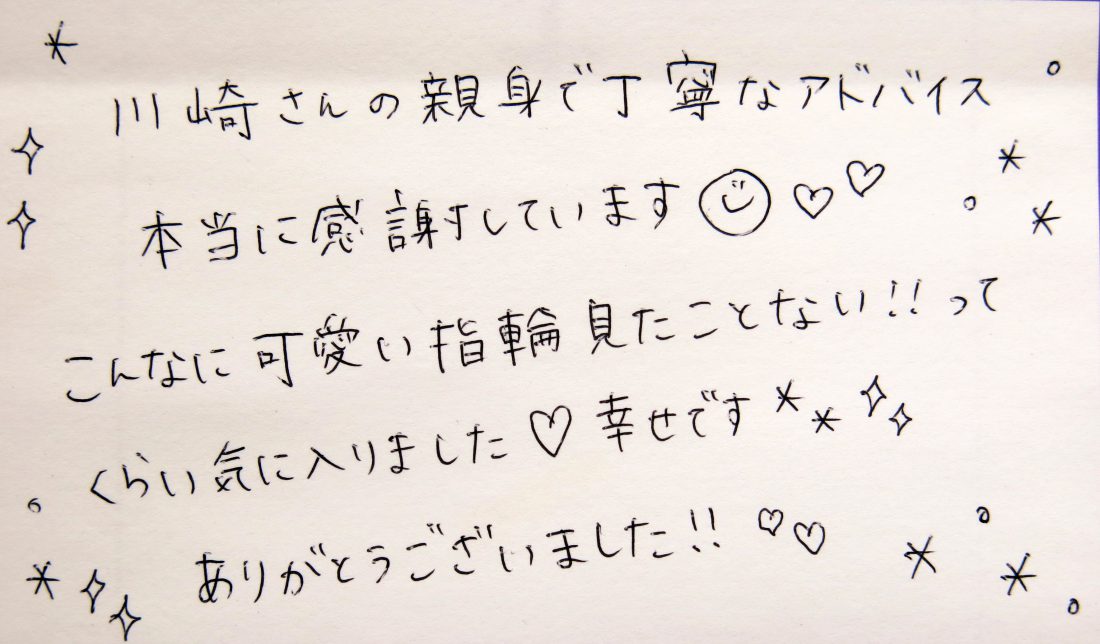 川崎さんの親身で丁寧なアドバイス
本当に感謝しています☺♡♡
こんなに可愛い指輪見たことない!!って
くらい気に入りました♡幸せです**✧✧
ありがとうございました!!♡♡